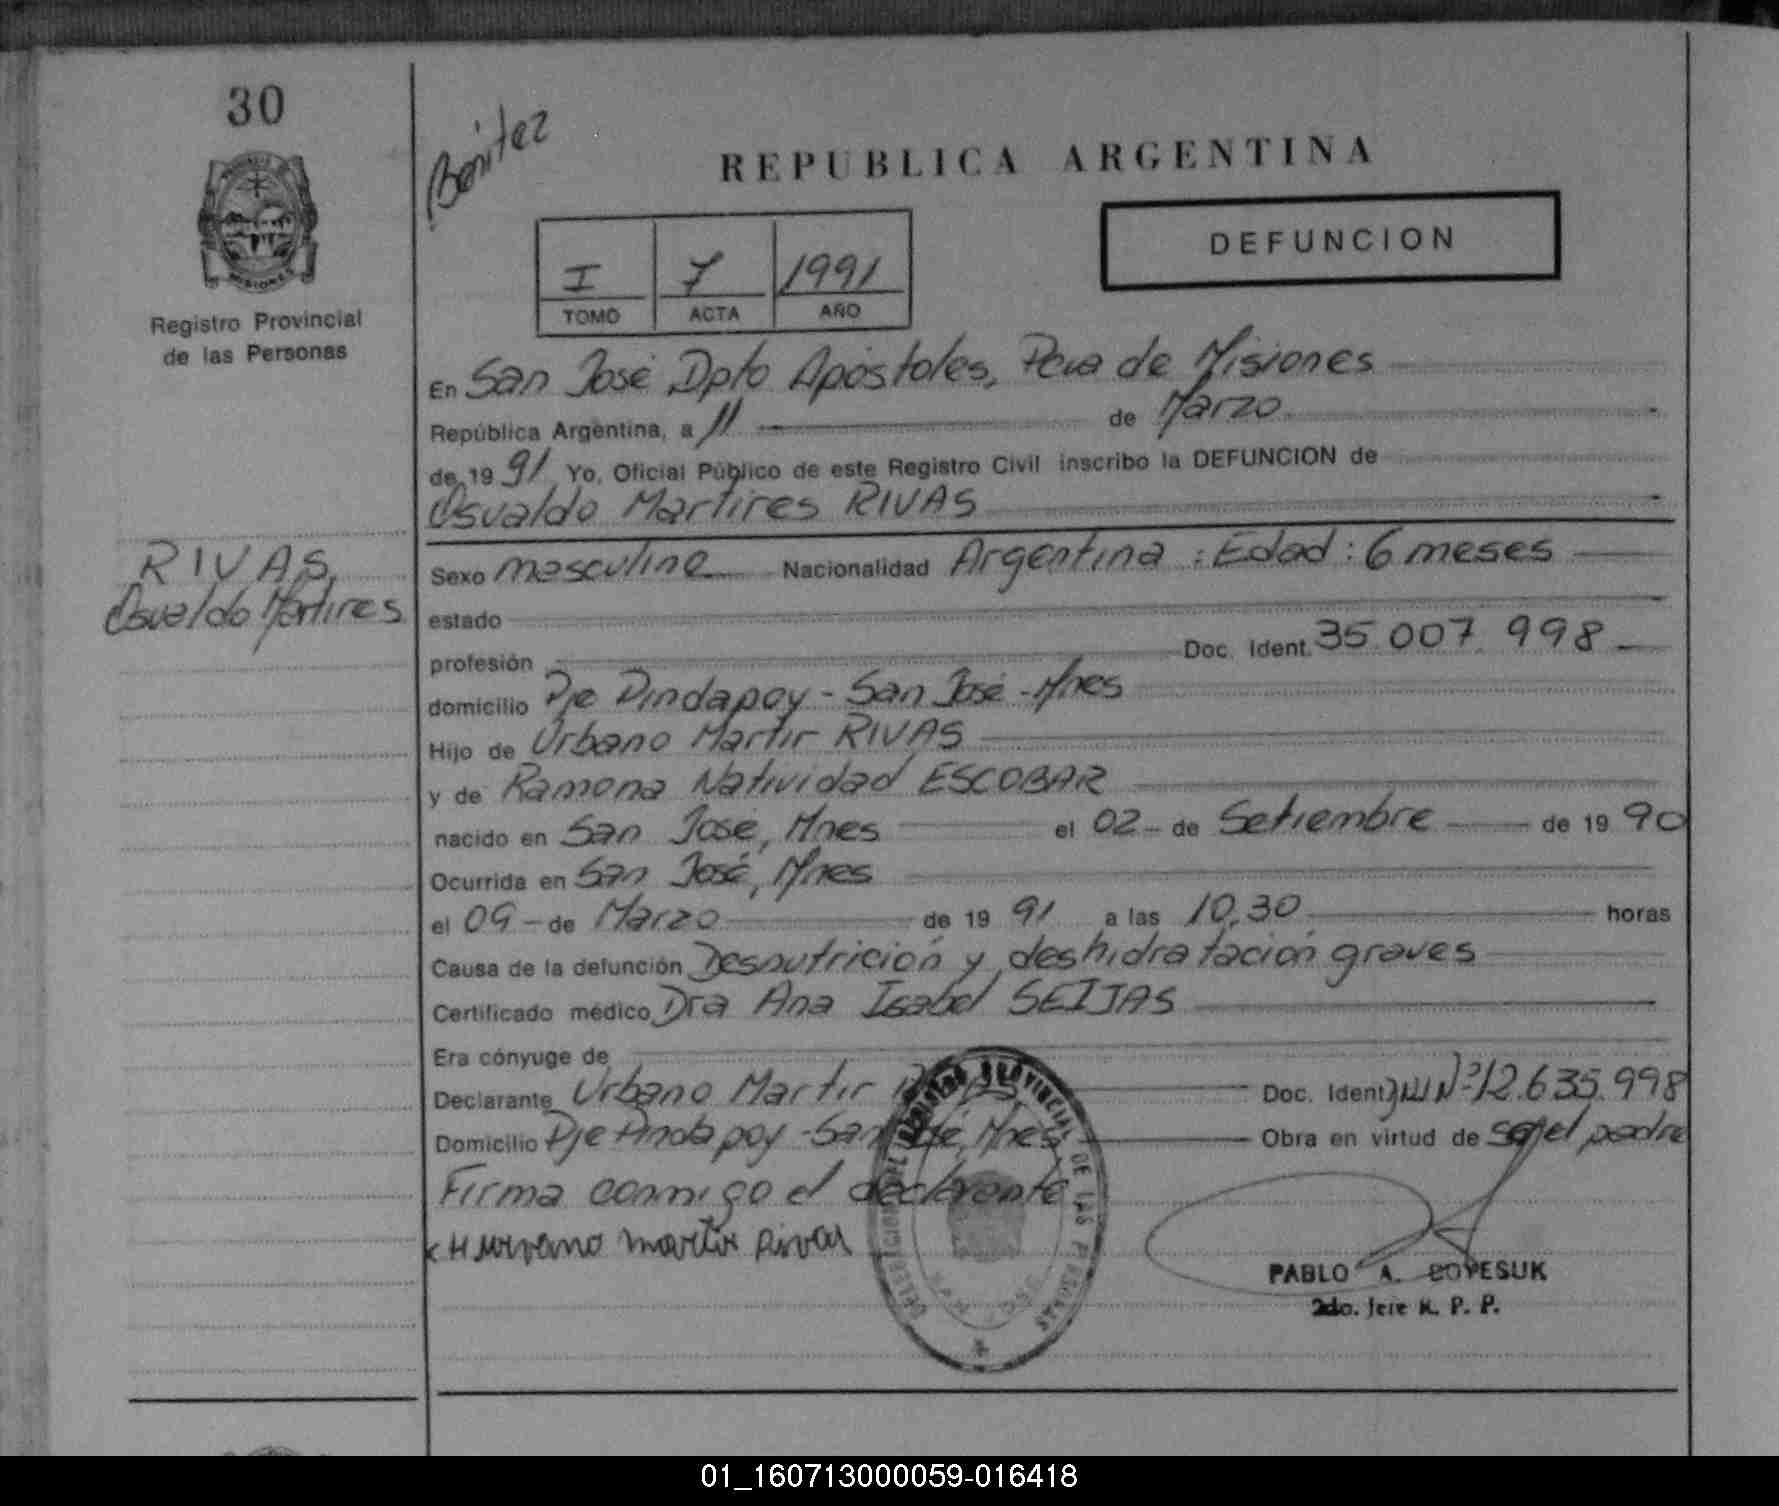 30
MISIONES
Registro Provincial
de las Personas
RIVAS,
Osvaldo Martires
Benitez
REPUBLICA ARGENTINA
DEFUNCION
I 7 1991
TOMO ACTA AÑO
En San José Dpto Apóstoles, Pcia de Misiones
República Argentina, a 11 de Marzo
de 1991 Yo, Oficial Público de este Registro Civil inscribo la DEFUNCION de
Osvaldo Martires RIVAS
Sexo masculino Nacionalidad Argentina : Edad : 6 meses
estado
profesión Doc. Ident. 35.007.998
domicilio Pje Pindapoy - San José - Mnes
Hijo de Urbano Martir RIVAS
y de Ramona Natividad ESCOBAR
nacido en San Jose, Mnes el 02 - de Setiembre de 1990
Ocurrida en San José, Mnes
el 09 - de Marzo de 1991 a las 10,30 horas
Causa de la defunción Desnutrición y deshidratación graves
Certificado médico Dra Ana Isabel SEIJAS
Era cónyuge de
Declarante Urbano Martir RIVAS Doc. Ident. DNI Nº 12.635.998
Domicilio Pje Pindapoy - San José, Mnes Obra en virtud de ser el padre
Firma conmigo el declarante
martir Rivas
REGISTRO PROVINCIAL DE LAS PERSONAS
SAN JOSE
PABLO A. BOYESUK
2do. Jefe R. P. P.
01_160713000059-016418